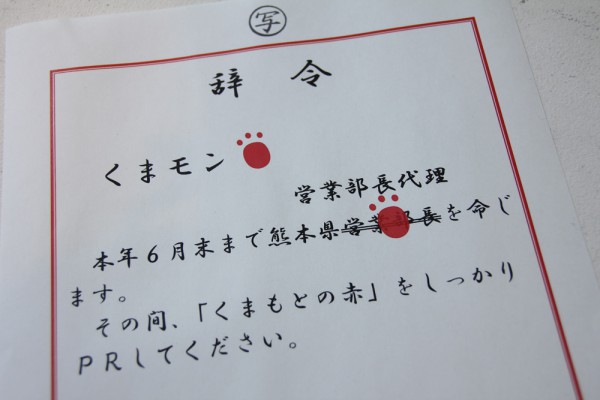 写
辞令
くまモン
営業部長代理
本年6月末まで熊本県営業部長を命じ
ます。
その間、「くまもとの赤」をしっかり
PRしてください。